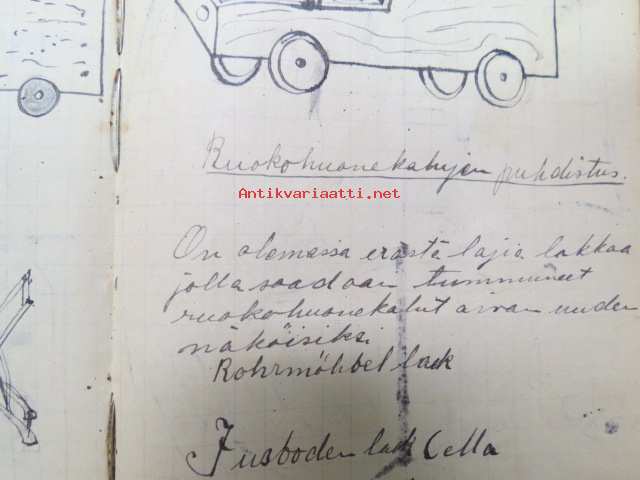 Ruokohuonekalujen puhdistus.
Antikvariaatti.net
On olemassa erästä lajia lakkaa
jolla saadaan tummuneet
ruokohuonekalut aivan uuden
näköisiksi
Rohrmöhbel lack
Fusboden lack Cella